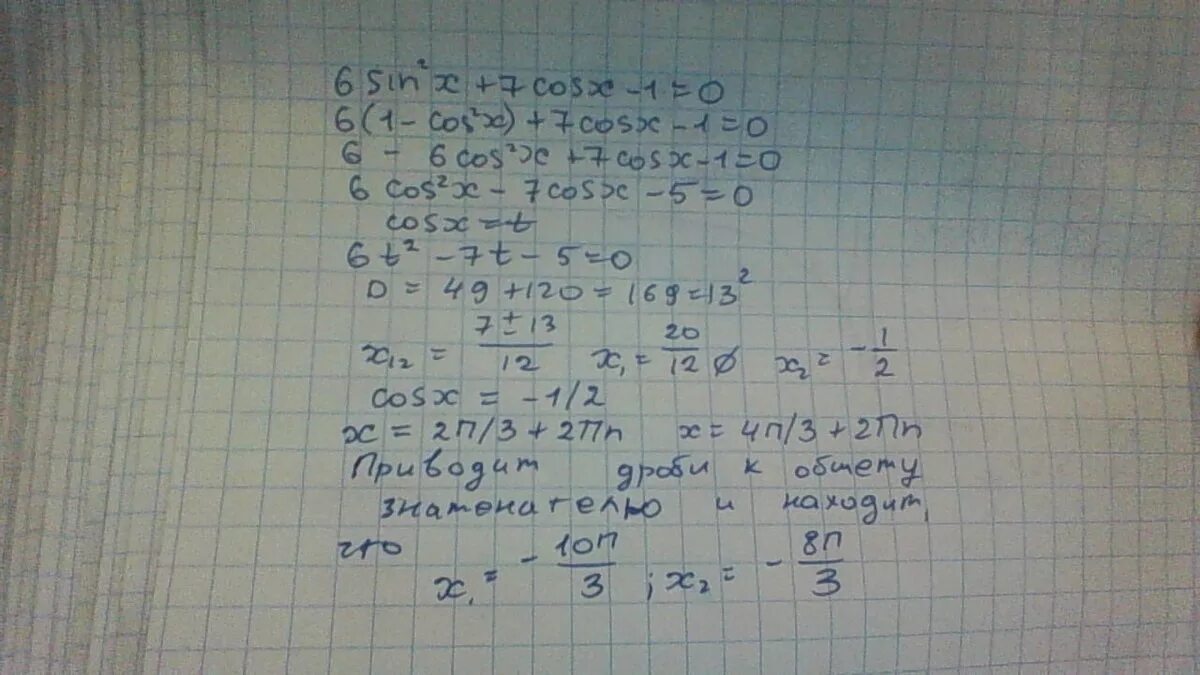 6 sin²x + 7 cosx - 1 = 0
6(1 - cos²x) + 7cosx - 1 = 0
6 - 6cos²x + 7cosx - 1 = 0
6 cos²x - 7cosx - 5 = 0
cosx = t
6t² - 7t - 5 = 0
D = 49 + 120 = 169 = 13²
x₁₂ = (7 ± 13)/12 x₁ = 20/12 ∅ x₂ = -1/2
cosx = -1/2
x = 2π/3 + 2πn x = 4π/3 + 2πn
Приводит дроби к общему
знаменателю и находит,
что
x₁ = -10π/3 ; x₂ = -8π/3